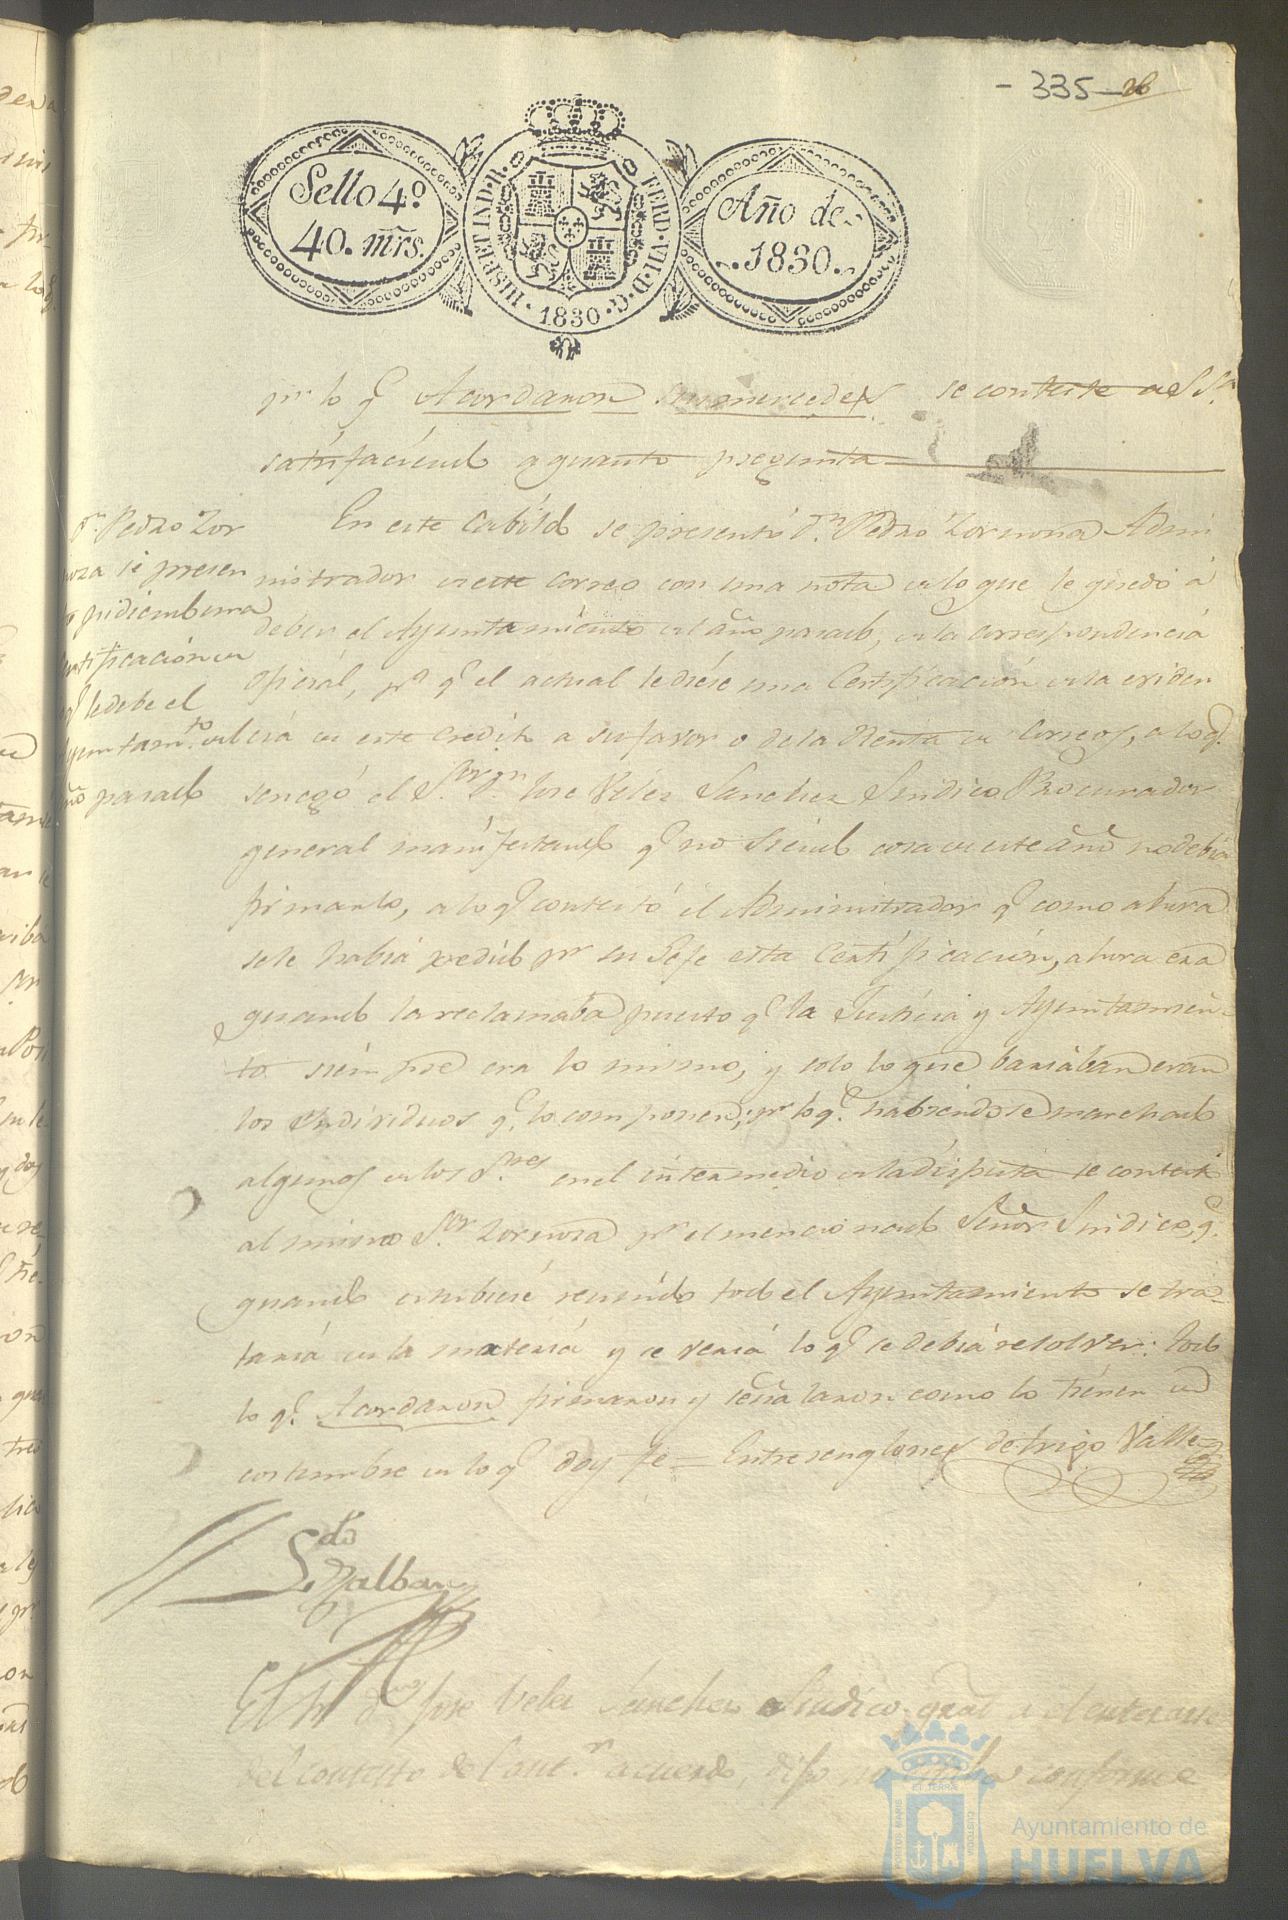 - 335 - 26
Sello 4.º
40. mrs.
HISP. ET IND. R.
FERD. VII. D. G.
1830
Año de
1830.
pr lo q.e Acordaron sus mercedes se conteste a S. S.a
satisfaciendo a quanto pregunta
D.n Pedro Zor
noza se presen
to pidiendo una
Certificación de
lo q.e le debe el
Ayuntam.to del
año pasado
En este Cabildo se presentó D.n Pedro Zornoza Admi
nistrador de este Correo con una nota de lo que le quedó á
deber el Ayuntamiento del año pasado, de la Correspondencia
oficial, p.a q.e el actual le diese una Certificacion de la eviden
cia de este credito a su favor o de la Renta de Correos, a lo q.e
se negó el S.or D.n Jose Velez Sanchez Sindico Procurador
general manifestando q.e no siendo cosa de este año no debia
firmarlo, a lo q.e contestó el Administrador q.e como ahora
se le habia pedido pr su Gefe esta Certificacion, ahora era
quando la reclamaba puesto q.e la Justicia y Ayuntamien
to siempre era lo mismo, y solo lo que bariaban eran
los Individuos q.e lo componen; pr lo q.e habiendose marchado
algunos de los S.res en el intermedio de la disputa se contestó
al mismo S.or Zornoza pr el mencionado Señor Sindico, q.e
quando estubiese reunido todo el Ayuntamiento se tra-
taria de la materia y se veria lo q.e se debia resolver: todo
lo q.e Acordaron firmaron y señalaron como lo tienen de
costumbre de lo q.e doy fe = Entrerenglones de trigo Valle
El S.r D.n Jose Velez Sanchez Sindico gral a el enterarse
del contesto del ant.r acuerdo, dijo no conforme
PORTUS MARIS
ET TERRAE
CUSTODIA
Ayuntamiento de
HUELVA